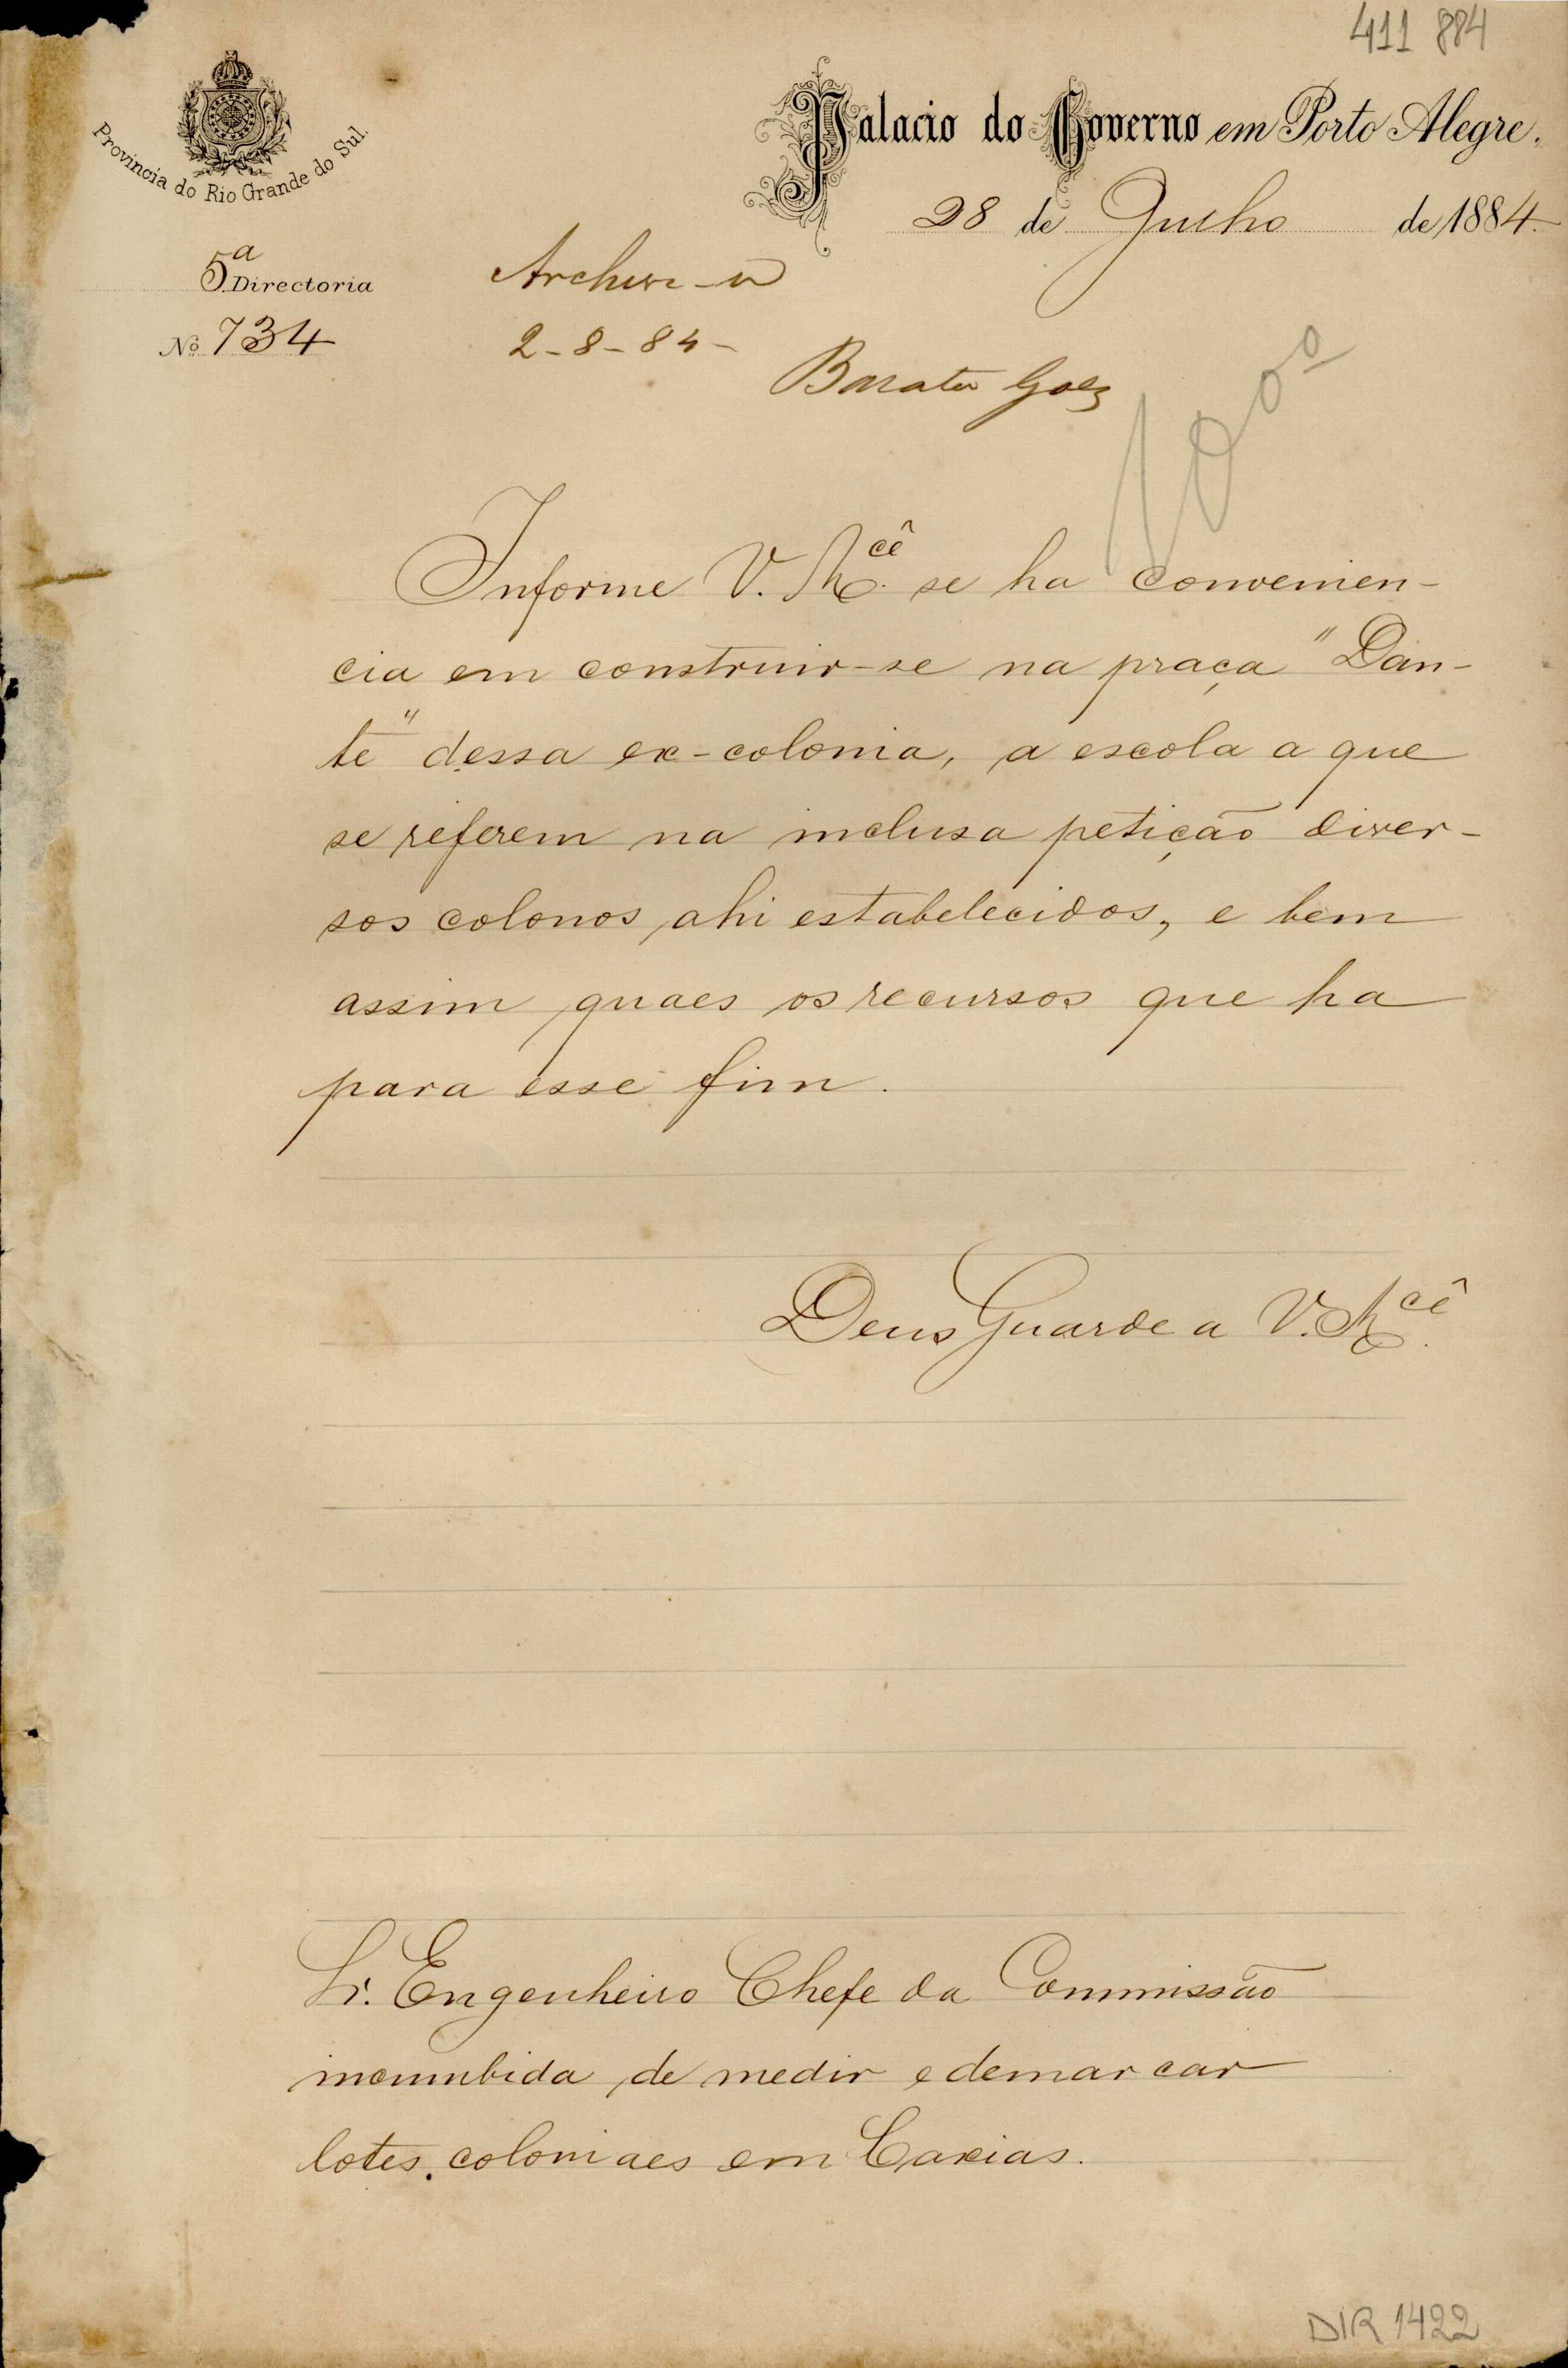 411 884
Provincia do Rio Grande do Sul
Palacio do Governo em Porto Alegre.
28 de Julho de 1884.
5.ª Directoria
Nº 734
Archive-se
2-8-84-
Barata Góes
10º
Informe V. M.cê se ha convenien-
cia em construir-se na praça "Dan-
te" dessa ex-colonia, a escola a que
se referem na inclusa petição diver-
sos colonos ahi estabelecidos, e bem
assim quaes os recursos que ha
para esse fim.
Deus Guarde a V. M.cê
Sr. Engenheiro Chefe da Commissão
incumbida de medir e demarcar
lotes coloniaes em Caxias.
DIR 1422